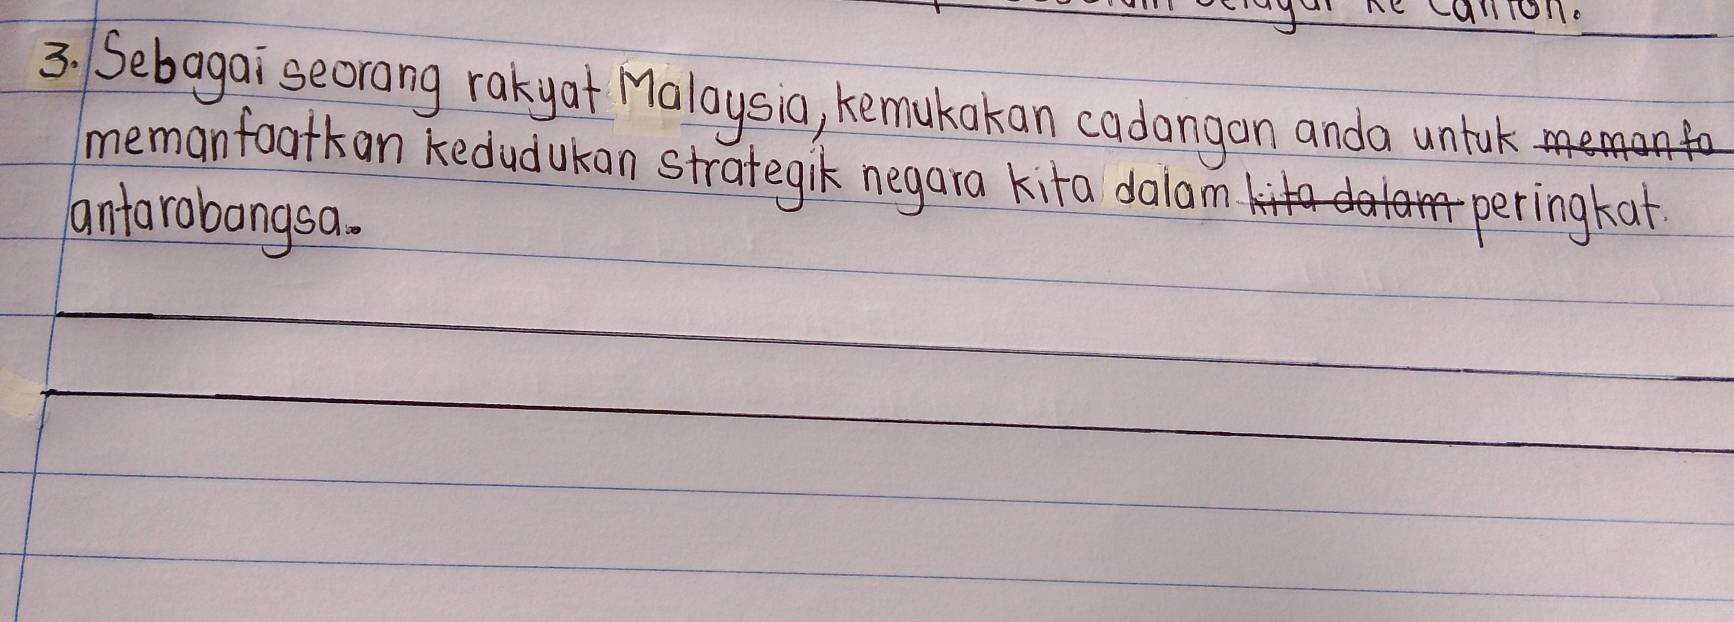 ke Canton.
3. Sebagai seorang rakyat Malaysia, kemukakan cadangan anda untuk memanfa
memanfaatkan kedudukan strategik negara kita dalam kita dalam peringkat
antarabangsa.